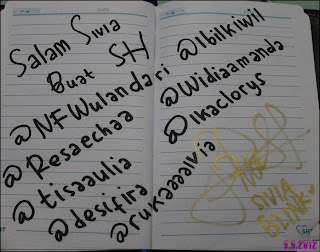 Salam Sivia
Buat SH
@NFWulandari
@Resaechaa
@tisaaulia
@desifira
@rukaaaalvia
@Ibilkiwil
@Widiaamanda
@Ikaclorys
SIVIA
BLINK
9.5.2012